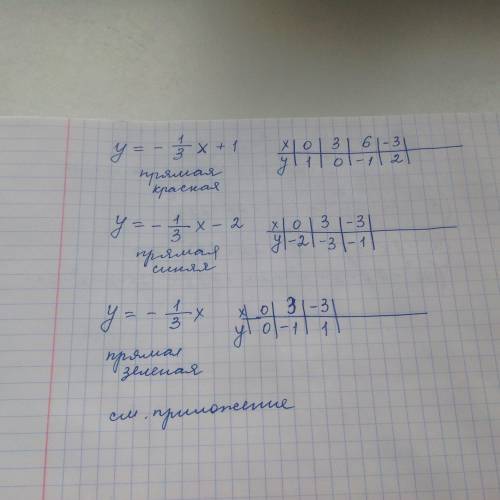 y = - 1/3 x + 1
прямая
красная
x | 0 | 3 | 6 | -3
y | 1 | 0 | -1 | 2
y = - 1/3 x - 2
прямая
синяя
x | 0 | 3 | -3
y | -2 | -3 | -1
y = - 1/3 x
прямая
зеленая
x | 0 | 3 | -3
y | 0 | -1 | 1
см. приложение